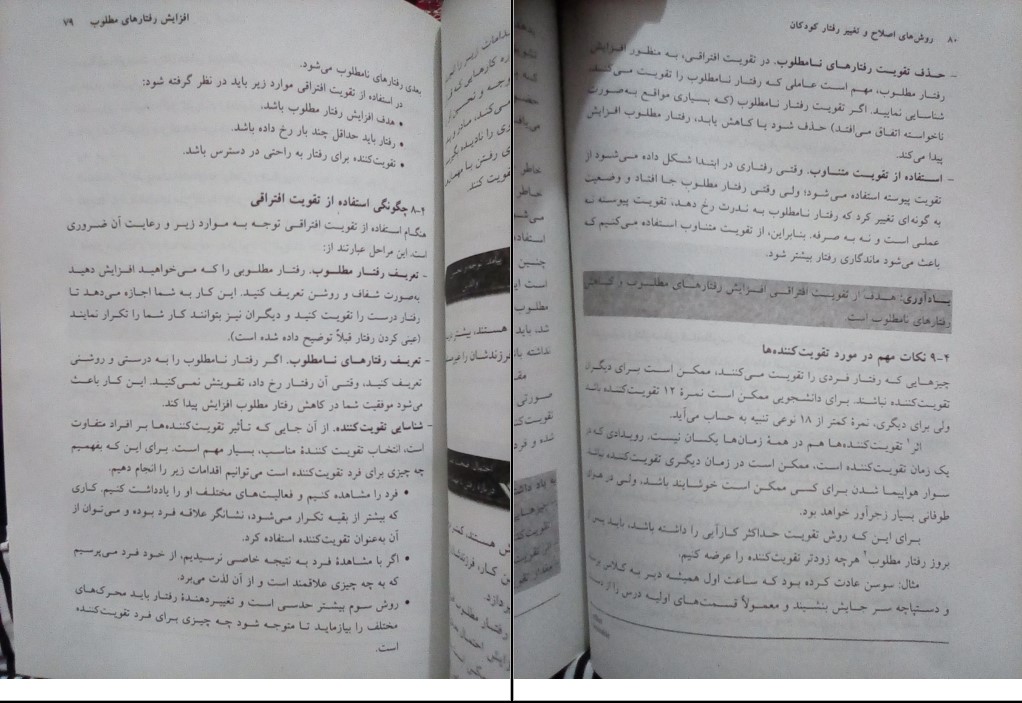 افزایش رفتارهای مطلوب ۷۹
بعدی رفتارهای نامطلوب می‌شود.
در استفاده از تقویت افتراقی موارد زیر باید در نظر گرفته شود:
• هدف افزایش رفتار مطلوب باشد.
• رفتار باید حداقل چند بار رخ داده باشد.
• تقویت‌کننده برای رفتار به راحتی در دسترس باشد.
۸-۴ چگونگی استفاده از تقویت افتراقی
هنگام استفاده از تقویت افتراقی توجه به موارد زیر و رعایت آن ضروری
است. این مراحل عبارتند از:
- تعریف رفتار مطلوب. رفتار مطلوبی را که می‌خواهید افزایش دهید
به‌صورت شفاف و روشن تعریف کنید. این کار به شما اجازه می‌دهد تا
رفتار درست را تقویت کنید و دیگران نیز بتوانند کار شما را تکرار نمایند
(عینی کردن رفتار قبلاً توضیح داده شده است).
- تعریف رفتارهای نامطلوب. اگر رفتار نامطلوب را به درستی و روشنی
تعریف کنید، وقتی آن رفتار رخ داد، تقویتش نمی‌کنید. این کار باعث
می‌شود موفقیت شما در کاهش رفتار مطلوب افزایش پیدا کند.
- شناسایی تقویت‌کننده. از آن جایی که تأثیر تقویت‌کننده‌ها بر افراد متفاوت
است، انتخاب تقویت کنندهٔ مناسب، بسیار مهم است. برای این که بفهمیم
چه چیزی برای فرد تقویت‌کننده است می‌توانیم اقدامات زیر را انجام دهیم.
• فرد را مشاهده کنیم و فعالیت‌های مختلف او را یادداشت کنیم. کاری
که بیشتر از بقیه تکرار می‌شود، نشانگر علاقه فرد بوده و می‌توان از
آن به‌عنوان تقویت‌کننده استفاده کرد.
• اگر با مشاهدهٔ فرد به نتیجه خاصی نرسیدیم، از خود فرد می‌پرسیم
که به چه چیزی علاقمند است و از آن لذت می‌برد.
• روش سوم بیشتر حدسی است و تغییردهندهٔ رفتار باید محرک‌های
مختلف را بیازماید تا متوجه شود چه چیزی برای فرد تقویت‌کننده
است.
۸۰ روش‌های اصلاح و تغییر رفتار کودکان
- حذف تقویت رفتارهای نامطلوب. در تقویت افتراقی، به منظور افزایش
رفتار مطلوب، مهم است عاملی که رفتار نامطلوب را تقویت می‌کند،
شناسایی نمایید. اگر تقویت رفتار نامطلوب (که بسیاری مواقع به‌صورت
ناخواسته اتفاق می‌افتد) حذف شود یا کاهش یابد، رفتار مطلوب افزایش
پیدا می‌کند.
- استفاده از تقویت متناوب. وقتی رفتاری در ابتدا شکل داده می‌شود از
تقویت پیوسته استفاده می‌شود؛ ولی وقتی رفتار مطلوب جا افتاد و وضعیت
به گونه‌ای تغییر کرد که رفتار نامطلوب به ندرت رخ دهد، تقویت پیوسته نه
عملی است و نه به صرفه. بنابراین، از تقویت متناوب استفاده می‌کنیم که
باعث می‌شود ماندگاری رفتار بیشتر شود.
یادآوری: هدف از تقویت افتراقی افزایش رفتارهای مطلوب و کاهش
رفتارهای نامطلوب است.
۹-۴ نکات مهم در مورد تقویت‌کننده‌ها
چیزهایی که رفتار فردی را تقویت می‌کنند، ممکن است برای دیگران
تقویت‌کننده نباشند. برای دانشجویی ممکن است نمرهٔ ۱۲ تقویت‌کننده باشد
ولی برای دیگری، نمرهٔ کمتر از ۱۸ نوعی تنبیه به حساب می‌آید.
اثر۱ تقویت‌کننده‌ها هم در همهٔ زمان‌ها یکسان نیست. رویدادی که در
یک زمان تقویت‌کننده است، ممکن است در زمان دیگری تقویت‌کننده نباشد.
سوار هواپیما شدن برای کسی ممکن است خوشایند باشد، ولی در هوای
طوفانی بسیار زجرآور خواهد بود.
برای این که روش تقویت حداکثر کارآیی را داشته باشد، باید پس از
بروز رفتار مطلوب۲ هرچه زودتر تقویت‌کننده را عرضه کنیم.
مثال: سوسن عادت کرده بود که ساعت اول همیشه دیر به کلاس برسد
و دستپاچه سر جایش بنشیند و معمولاً قسمت‌های اولیه درس را از دست